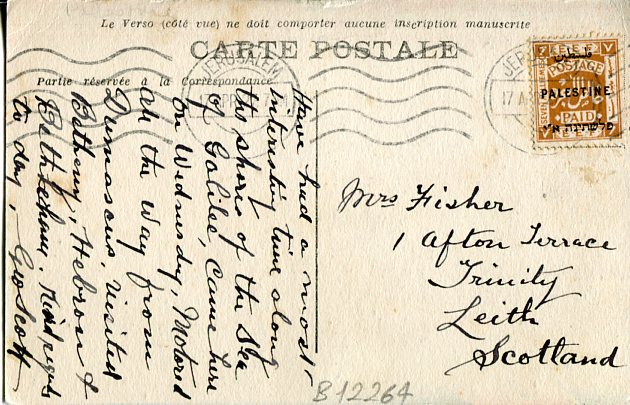 Le Verso (côté vue) ne doit comporter aucune inscription manuscrite
CARTE POSTALE
Partie réservée à la Correspondance
JERUSALEM
JER
17 A
POSTAGE
PALESTINE
PAID
فلسطين
פלשתינה א״י
Have had a most
interesting time along
the shores of the Sea
of Galilee, Came here
on Wednesday, Motored
all the way from
Damascus, visited
Bethany, Hebron &
Bethlehem, Kind regards
to day, Geo Scott
Mrs Fisher
1 Afton Terrace
Trinity
Leith
Scotland
B12264